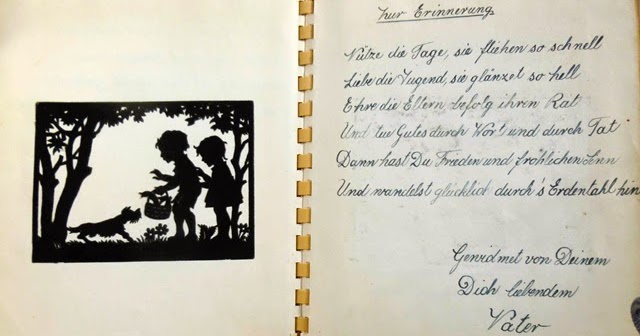 Zur Erinnerung
Nütze die Tage, sie fliehen so schnell
Liebe die Tugend, sie glänzet so hell
Ehre die Eltern befolg ihren Rat
Und tue Gutes durch Wort und durch Tat
Dann hast Du Frieden und fröhlichen Sinn
Und wandelst glücklich durch's Erdentahl hin
Gewidmet von Deinem
Dich liebendem
Vater